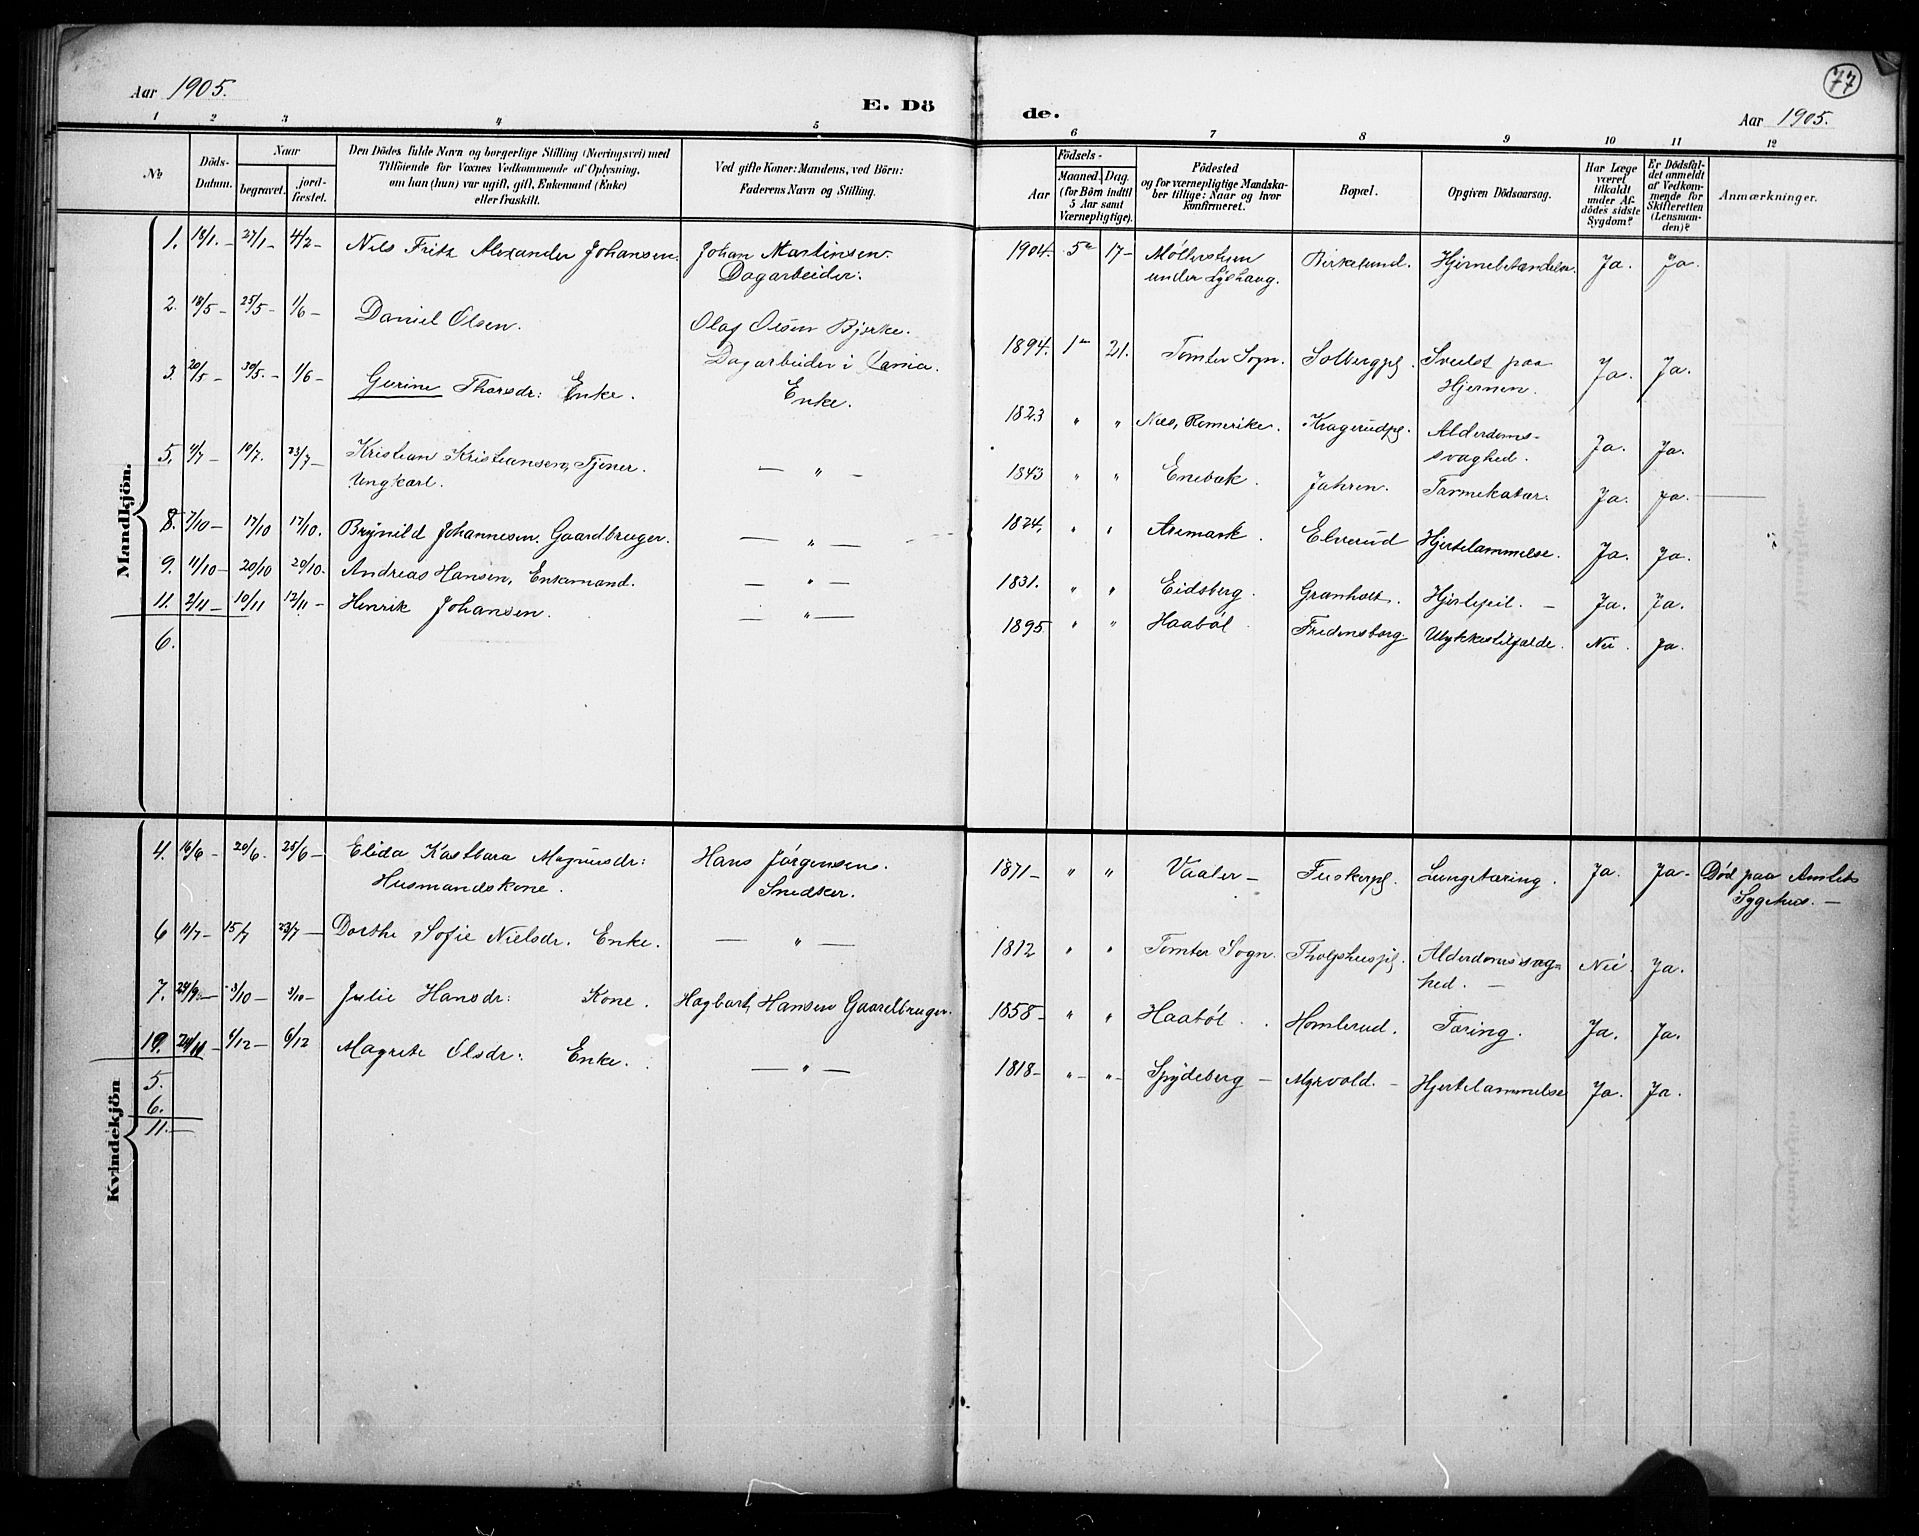 77
Aar 1905.
E. Dö
de.
Aar 1905.
1 2 3 4 5 6 7 8 9 10 11 12
No
Döds-
Datum.
Naar
begravet.
jord-
fæstet.
Den Dödes fulde Navn og borgerlige Stilling (Næringsvei) med
Tilföiende for Voxnes Vedkommende af Oplysning,
om han (hun) var ugift, gift, Enkemand (Enke)
eller fraskilt.
Ved gifte Koner: Mandens, ved Börn:
Faderens Navn og Stilling.
Födsels-
Aar
Maaned. Dag.
(for Börn indtil
5 Aar samt
Værnepligtige).
Födested
og for værnepligtige Mandska-
ber tillige: Naar og hvor
konfirmeret.
Bopæl.
Opgiven Dödsaarsag.
Har Læge
været
tilkaldt
under Af-
dödes sidste
Sygdom?
Er Dödsfal-
det anmeldt
af Vedkom-
mende for
Skifteretten
(Lensman-
den)?
Anmærkninger.
Mandkjön.
1. 18/1. - 27/1 - 4/2 - Nils Fritz Alexander Johansen. Johan Martinsen. 1904. 17 - Birkelund. Ja. Ja.
Dagarbeider. under
2. 18/5 - 25/5 - 1/6 - Daniel Olsen. Olaf Olsen Bjerke. 1894. 21. Tomter Sogn. Solbergpl. Svulst paa Ja. Ja.
Dagarbeider i Hjernen.
3. 20/5 - 30/5. - 1/6 - Gurine Thorsdr: Enke. Enke. 1823 " " Næs, Romerike. Kragerudpl. Alderdoms- Ja. Ja.
svaghed.
5. 11/7 - 19/7. 23/7 - Kristian Kristiansen, Tjener. — " — 1843 " " Enebak. Jahren. Tarmekatar. Ja. Ja.
Ungkarl.
8. 7/10 - 17/10 17/10. Brynild Johannesen. Gaardbruger. — " — 1824. " " Aremark. Elverud Hjertelammelse. Ja. Ja.
9. 11/10 - 20/10 20/10. Andreas Hansen, Enkemand. — " — 1831. " " Eidsberg. Granholt. Hjertefeil. - Ja. Ja.
11. 2/11 - 10/11 12/11 - Henrik Johansen. — " — 1895 " " Haaböl. Fredensborg. Ulykkestilfælde. Nei. Ja.
6.
Kvindekjön
4. 16/6 - 20/6. 25/6 - Elida Kastbara Magnusdr: Hans Jörgensen. 1871 - " " Vaaler - Fuskerpl. Lungetæring. Ja. Ja. - Död paa Amtets
Husmandskone. Snedker. Sygehus. -
6 11/7 - 15/7 23/7 - Dorthe Sofie Nielsdr. Enke. — " — 1812 " " Tomter Sogn. Alderdomssvag- Nei. Ja.
hed. -
7. 24/9 - 3/10 - 3/10 - Julie Hansdr: Kone. Hagbart Hansen Gaardbruger. 1858 - " " Haaböl. Homlerud. Tæring. Ja. Ja.
10. 24/11 - 4/12 - 6/12 Magrete Olsdr: Enke. — " — 1818 - " - " - Spydeberg - Myrvold. - Hjertelammelse Ja. Ja.
5.
6.
11. -